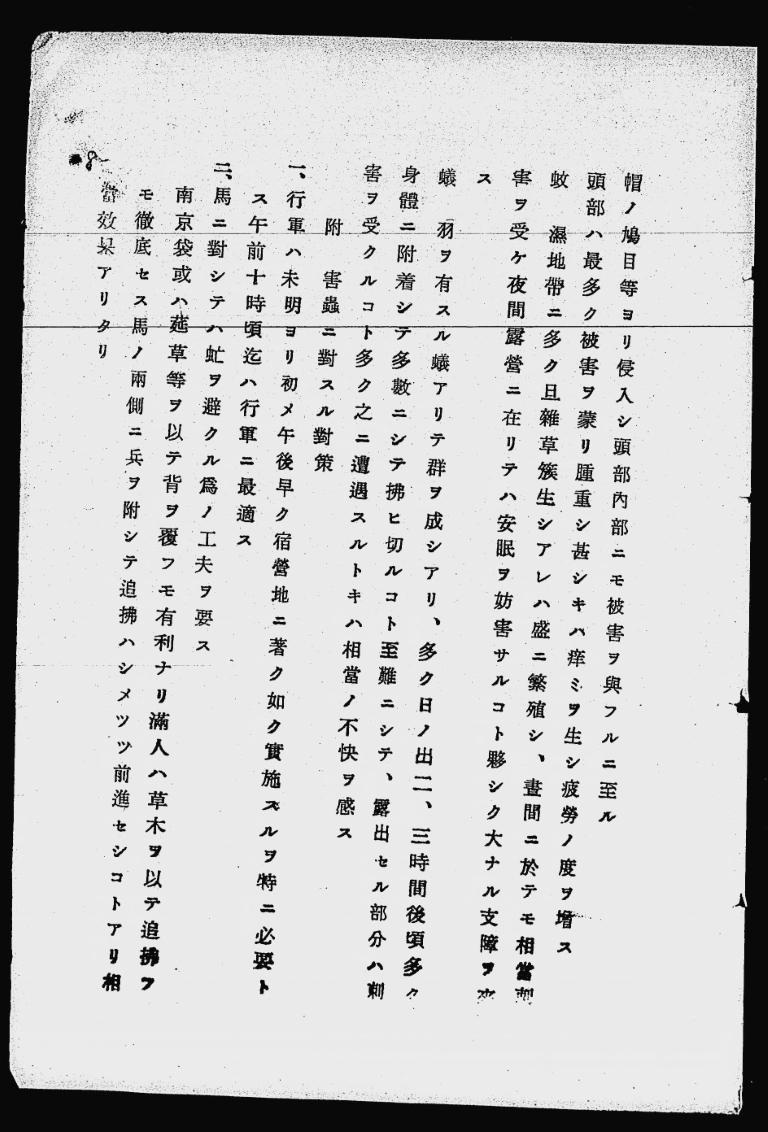 帽ノ鳩目等ヨリ侵入シ頭部內部ニモ被害ヲ與フルニ至ル
頭部ハ最多ク被害ヲ蒙リ腫重シ甚シキハ痒ミヲ生シ疲勞ノ度ヲ增ス
蚊　濕地帶ニ多ク且雜草簇生シアレハ盛ニ繁殖シ、晝間ニ於テモ相當刺
害ヲ受ケ夜間露營ニ在リテハ安眠ヲ妨害サルコト夥シク大ナル支障ヲ來
ス
蟻　羽ヲ有スル蟻アリテ群ヲ成シアリ、多ク日ノ出二、三時間後頃多ク
身體ニ附着シテ多數ニシテ拂ヒ切ルコト至難ニシテ、露出セル部分ハ刺
害ヲ受クルコト多ク之ニ遭遇スルトキハ相當ノ不快ヲ感ス
附　害蟲ニ對スル對策
一、行軍ハ未明ヨリ初メ午後早ク宿營地ニ著ク如ク實施スルヲ特ニ必要ト
ス午前十時頃迄ハ行軍ニ最適ス
二、馬ニ對シテハ虻ヲ避クル爲ノ工夫ヲ要ス
南京袋或ハ莚草等ヲ以テ背ヲ覆フモ有利ナリ滿人ハ草木ヲ以テ追拂フ
モ徹底セス馬ノ兩側ニ兵ヲ附シテ追拂ハシメツツ前進セシコトアリ相
當效果アリタリ